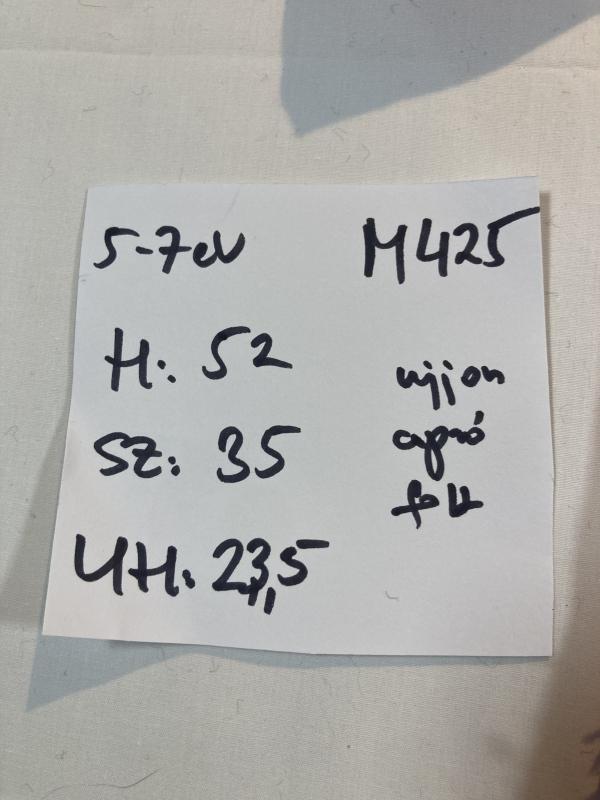 5-7 év
M425
H: 52
SZ: 35
UH: 23,5
ujjon
apró
folt